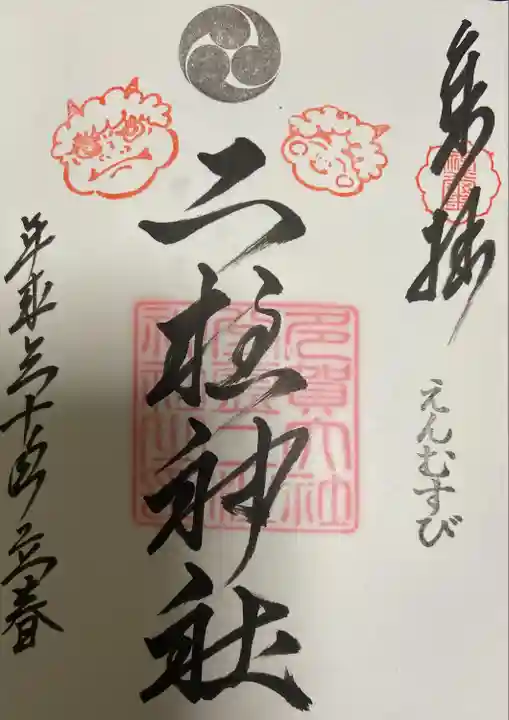 奉拝
えんむすび
二柱神社
多賀大社
平成三十年立春